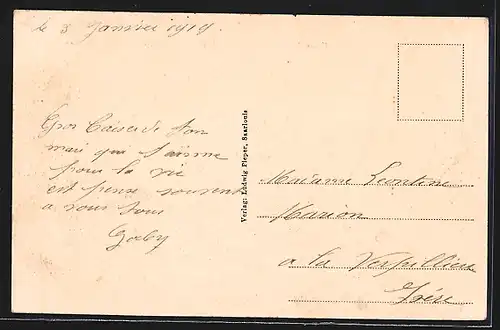 le 3 Janvier 1919.
Gros Baiser de ton
mari qui t'aime
pour la vie
et pense souvent
a vous tous
Gaby
Verlag: Ludwig Pieper, Saarlouis
Madame Leontine
Marion
a la Verpilliere
Isère